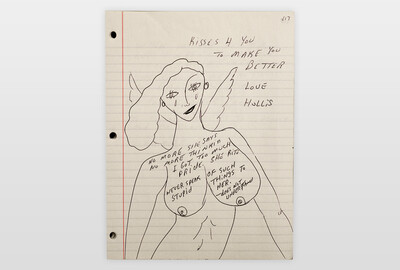 KISSES 4 YOU
TO MAKE YOU
BETTER
LOVE
HOLLIS
NO MORE SHE SAYS
NO MORE
I GOT TOO MUCH
PRIDE SHE
NEVER SPEAK OF SUCH
STUPID THINGS TO
HER.